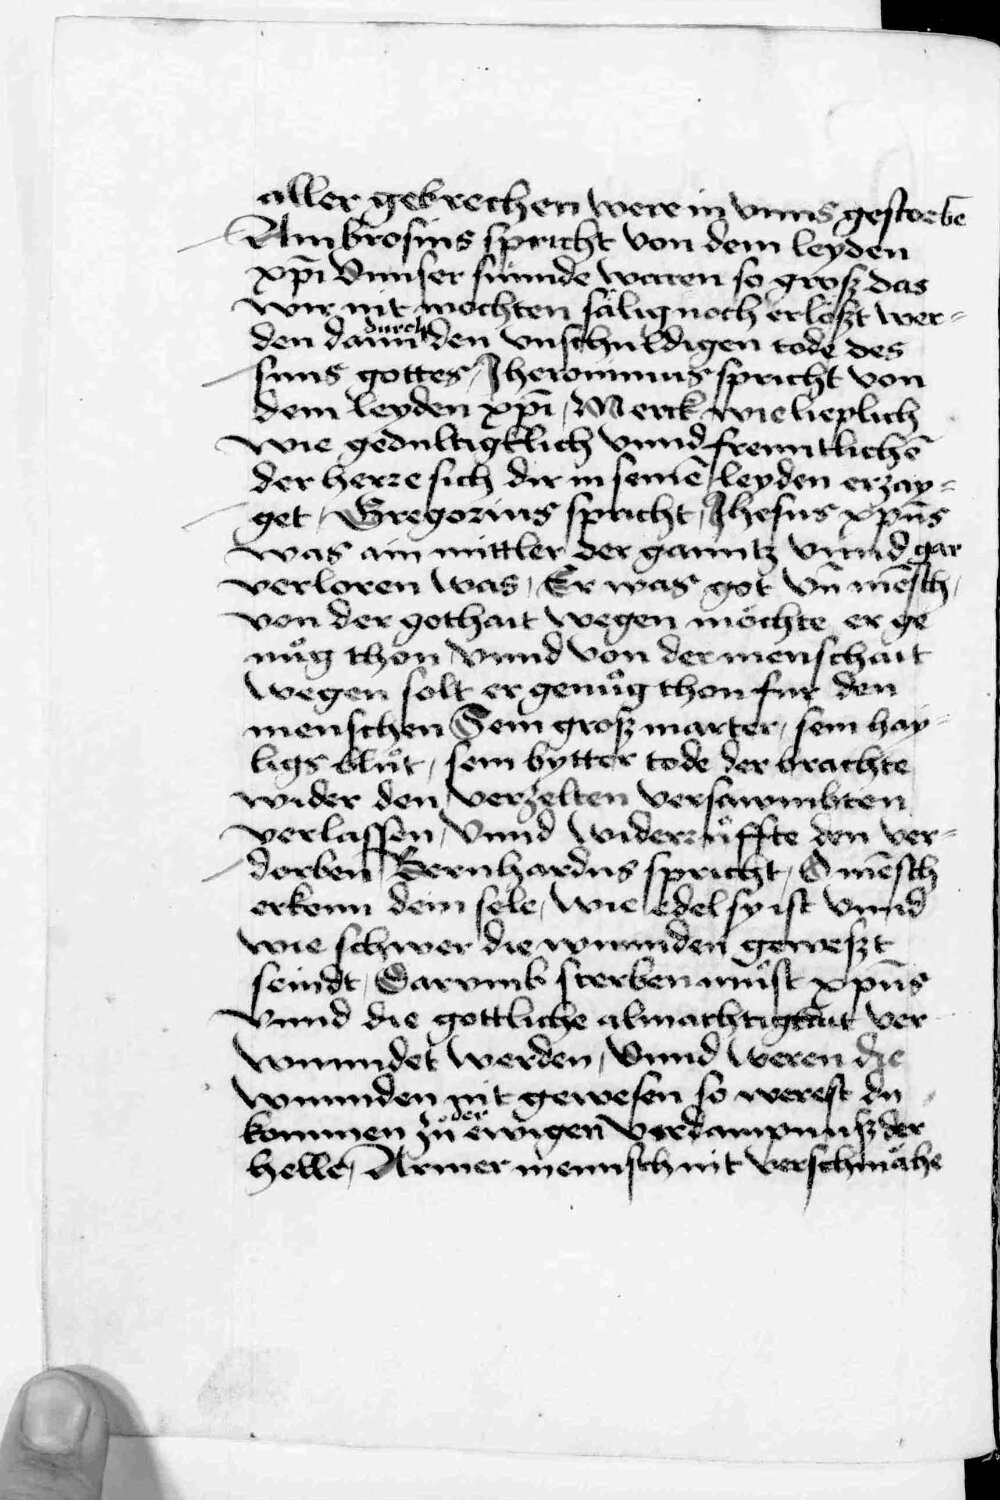 aller gebrechen were in vnns gestorbē
Ambrosius spricht von dem leyden
xp̄i Vnnser sünnde waren so grosz das
wir nit mochten sälig noch erlöszt wer=
den dann durch den vnschuldigen tode des
suns gottes, Jheronimus spricht von
dem leyden xp̄i, Merck wie lieplich
wie gedultigklich vnnd freuntlichē
der herre sich dir in seinē leyden erzay=
get, Gregorius spricht, Jhesus xp̄us
was ain mittler der ganntz vnnd gar
verloren was, Er was got vn̄ mēsch,
von der gothait wegen möchte er ge
nůg thon vnnd von der menschait
wegen solt er genůg thon fur den
menschen Sein grosz marter, sein hay=
ligs blůt, sein bytter tode der brachte
wider den verzelten versawmbten
verlassen, Vnnd widerrůffte den ver=
dorben Bernhardus spricht, O mēsch
erkenn dein sele, wie edel sy ist vnnd
wie schwer die wunnden geweszt
seindt, Darumb sterben můst xp̄us
Vnnd die gottliche almachtigkait ver
wunndet werden, Vnnd weren die
wunnden nit gewesen so werest du
kommen zů der ewigen verdampnusz der
helle, Armer mennsch nit verschmähe